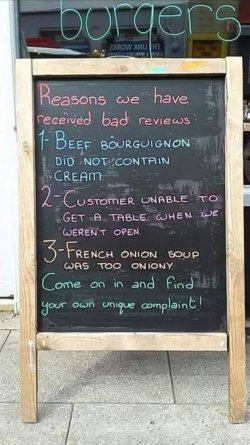 burgers
THE LINK WORKS
Reasons we have
received bad reviews:
1- BEEF BOURGUIGNON
DID NOT CONTAIN
CREAM
2- CUSTOMER UNABLE TO
GET A TABLE WHEN WE
WERENT OPEN
3- FRENCH ONION SOUP
WAS TOO ONIONY
Come on in and find
your own unique complaint!